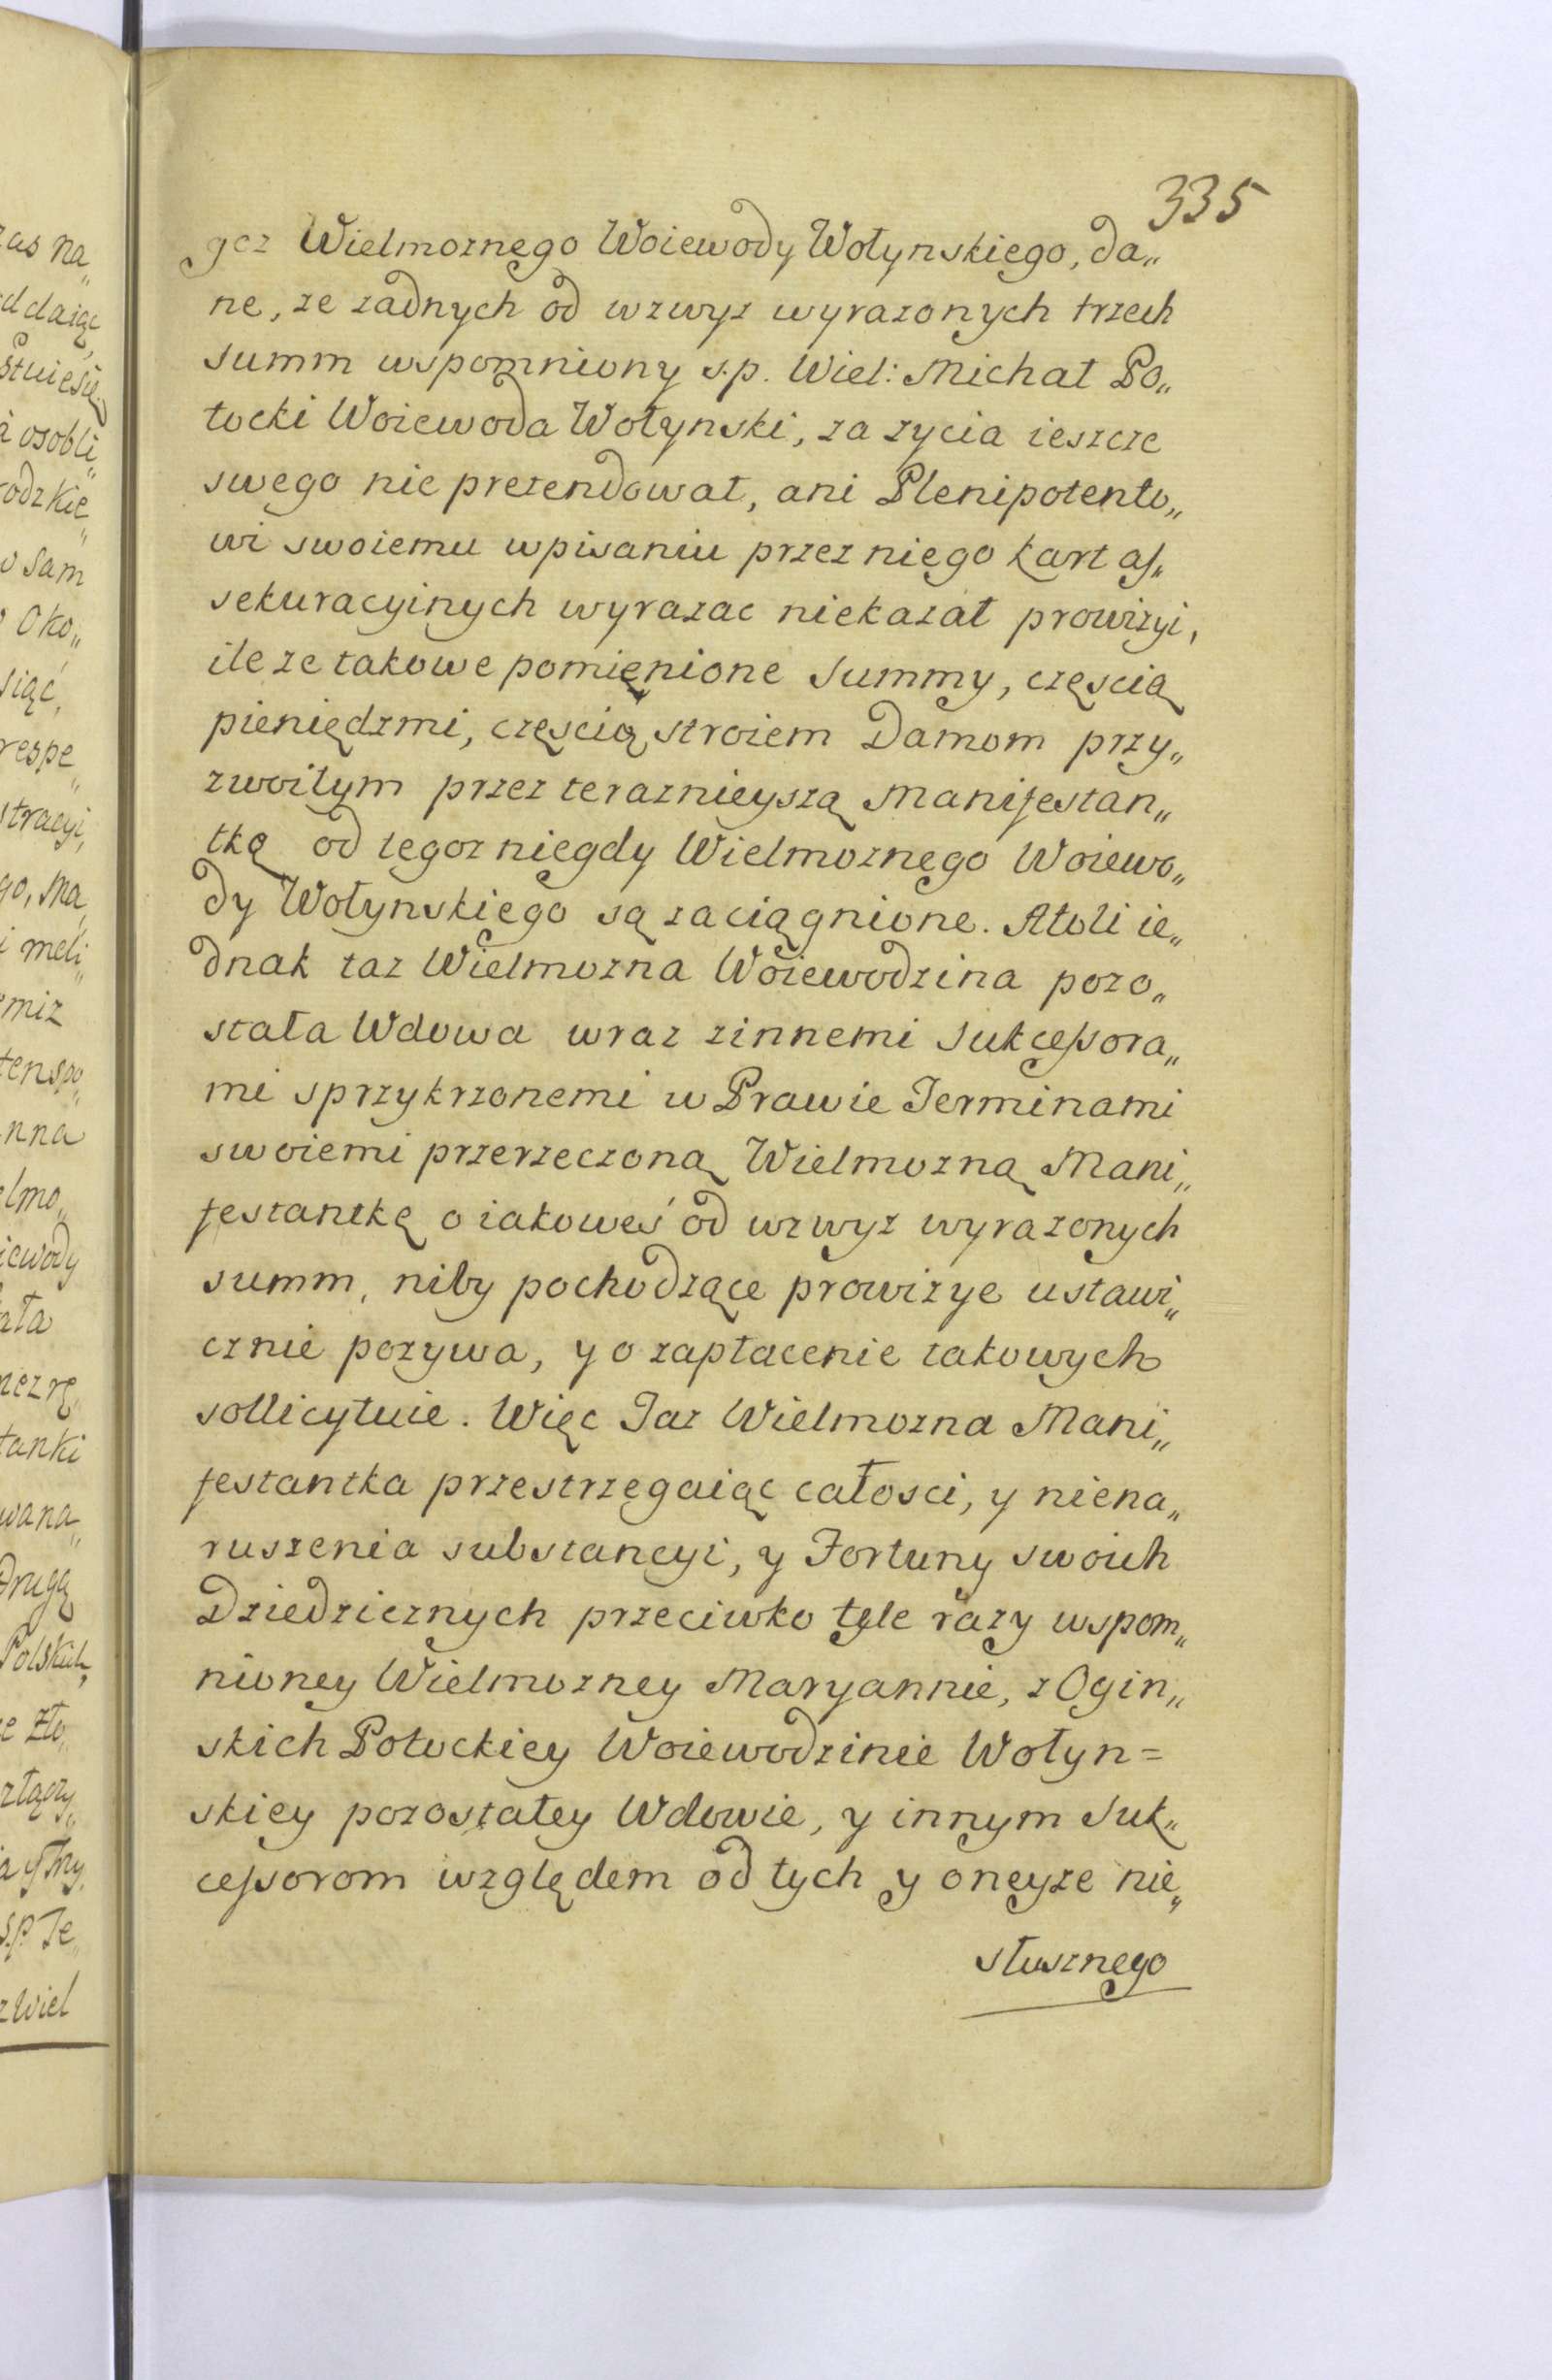 335
goz Wielmoznego Woiewody Wołynskiego, da„
ne, ze zadnych od wzwyz wyrazonych trzech
summ wspomniony s.p. Wiel: Michał Po„
tocki Woiewoda Wołynski, za zycia ieszcze
swego nie pretendował, ani Plenipotento„
wi swoiemu wpisaniu przez niego kart as„
sekuracyinych wyrazac niekazał prowizyi,
ile ze takowe pomięnione Summy, częscią
pieniędzmi, częscią stroiem Damom przy„
zwoitym przez teraznieyszą Manifestan„
tkę od tegoz niegdy Wielmoznego Woiewo„
dy Wołynskiego są zaciągnione. Atoli ie„
dnak taz Wielmozna Woiewodzina pozo„
stała Wdowa wraz zinnemi Sukcessora„
mi sprzykrzonemi w Prawie Terminami
swoiemi przerzeczoną Wielmozną Mani„
festantkę o iakoweś od wzwyz wyrazonych
summ, niby pochodzące prowizye ustawi„
cznie pozywa, y o zapłacenie takowych
sollicytuie. Więc Taz Wielmozna Mani„
festantka przestrzęgaiąc całosci, y niena„
ruszenia substancyi, y Fortuny swoich
Dziedzicznych przeciwko tyle razy wspom„
nioney Wielmozney Maryannie, z Ogin„
skich Potockiey Woiewodzinie Wołyn=
skiey pozostałey Wdowie, y innym Suk„
cessorom względem od tych y oneyze nie„
słusznego
zas na„
ddaiąc
osobli„
rodzkie„
o sam
Oko„
siąć,
respe„
stracyi,
go, Ma„
i meli„
miz
tenspo„
nna
elmo„
iewody
ała
tanki
wana„
Drugą
Polskich,
e zło„
złączy„
s.p. Te„
z Wiel